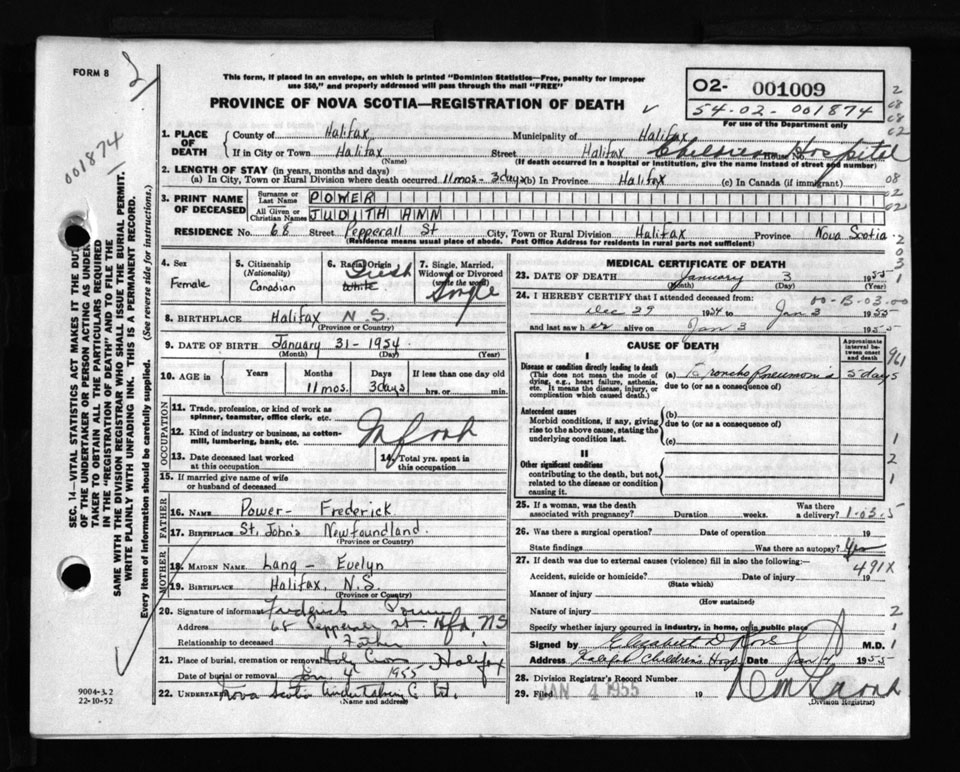 FORM 8
2
This form, if placed in an envelope, on which is printed "Dominion Statistics—Free, penalty for improper
use $50," and properly addressed will pass through the mail "FREE"
PROVINCE OF NOVA SCOTIA—REGISTRATION OF DEATH
02- 001009
54-02-001874
For use of the Department only
001874
SEC. 14. VITAL STATISTICS ACT MAKES IT THE DUTY
OF THE UNDERTAKER OR PERSON ACTING AS UNDER-
TAKER TO OBTAIN ALL THE PARTICULARS REQUIRED
IN THE "REGISTRATION OF DEATH" AND TO FILE THE
SAME WITH THE DIVISION REGISTRAR WHO SHALL ISSUE THE BURIAL PERMIT.
WRITE PLAINLY WITH UNFADING INK. THIS IS A PERMANENT RECORD.
Every item of information should be carefully supplied. (See reverse side for instructions.)
1. PLACE OF DEATH
County of Halifax Municipality of Halifax
If in City or Town Halifax Street Halifax Children Hospital House No.
(Name) (If death occurred in a hospital or institution, give the name instead of street and number)
2. LENGTH OF STAY (in years, months and days)
(a) In City, Town or Rural Division where death occurred 11mos- 3days (b) In Province Halifax (c) In Canada (if immigrant)
3. PRINT NAME OF DECEASED
Surname or Last Name POWER
All Given or Christian Names JUDITH ANN
RESIDENCE No. 68 Street Pepperall St City, Town or Rural Division Halifax Province Nova Scotia
(Residence means usual place of abode. Post Office Address for residents in rural parts not sufficient)
4. Sex
Female
5. Citizenship
(Nationality)
Canadian
6. Racial Origin
Irish
White
7. Single, Married,
Widowed or Divorced
(write the word)
Single
8. BIRTHPLACE Halifax N.S.
(Province or Country)
9. DATE OF BIRTH January 31- 1954
(Month) (Day) (Year)
10. AGE in
Years Months Days If less than one day old
11mos. 3days hrs. or min.
OCCUPATION
11. Trade, profession, or kind of work as
spinner, teamster, office clerk, etc.
12. Kind of industry or business, as cotton-
mill, lumbering, bank, etc.
Infant
13. Date deceased last worked
at this occupation
14. Total yrs. spent in
this occupation
15. If married give name of wife
or husband of deceased
FATHER
16. NAME Power- Frederick
17. BIRTHPLACE St. John's Newfoundland.
(Province or Country)
MOTHER
18. MAIDEN NAME Lang - Evelyn
19. BIRTHPLACE Halifax, N.S.
(Province or Country)
20. Signature of informant Frederick Power
Address 68 Pepperall St. Hfx, NS
Relationship to deceased Father
21. Place of burial, cremation or removal Holy Cross Halifax
Date of burial or removal Jan 4 1955
22. UNDERTAKER Nova Scotia Undertaking Co Ltd.
(Name and address)
9004-3.2
22-10-52
MEDICAL CERTIFICATE OF DEATH
23. DATE OF DEATH January 3 1955
(Month) (Day) (Year)
24. I HEREBY CERTIFY that I attended deceased from: 00-B-03.00
Dec 29 1954 to Jan 3 1955
and last saw her alive on Jan 3 1955
CAUSE OF DEATH
Approximate
interval be-
tween onset
and death
I
Disease or condition directly leading to death
(This does not mean the mode of
dying, e.g., heart failure, asthenia,
etc. It means the disease, injury, or
complication which caused death.)
(a) Broncho Pneumonia 5 days
due to (or as a consequence of)
Antecedent causes
Morbid conditions, if any, giving
rise to the above cause, stating the
underlying condition last.
(b)
due to (or as a consequence of)
(c)
II
Other significant conditions
contributing to the death, but not
related to the disease or condition
causing it.
25. If a woman, was the death
associated with pregnancy? Duration weeks. Was there
a delivery? 1-03-5
26. Was there a surgical operation? Date of operation 19
State findings Was there an autopsy? Yes
27. If death was due to external causes (violence) fill in also the following:— 491X
Accident, suicide or homicide? Date of injury 19
(State which)
Manner of injury
(How sustained)
Nature of injury
Specify whether injury occurred in industry, in home, or in public place
Signed by Elizabeth D Ross M.D.
Address Halifax Children's Hosp Date Jan 1955
28. Division Registrar's Record Number
29. Filed JAN 4 1955 19
(Division Registrar)